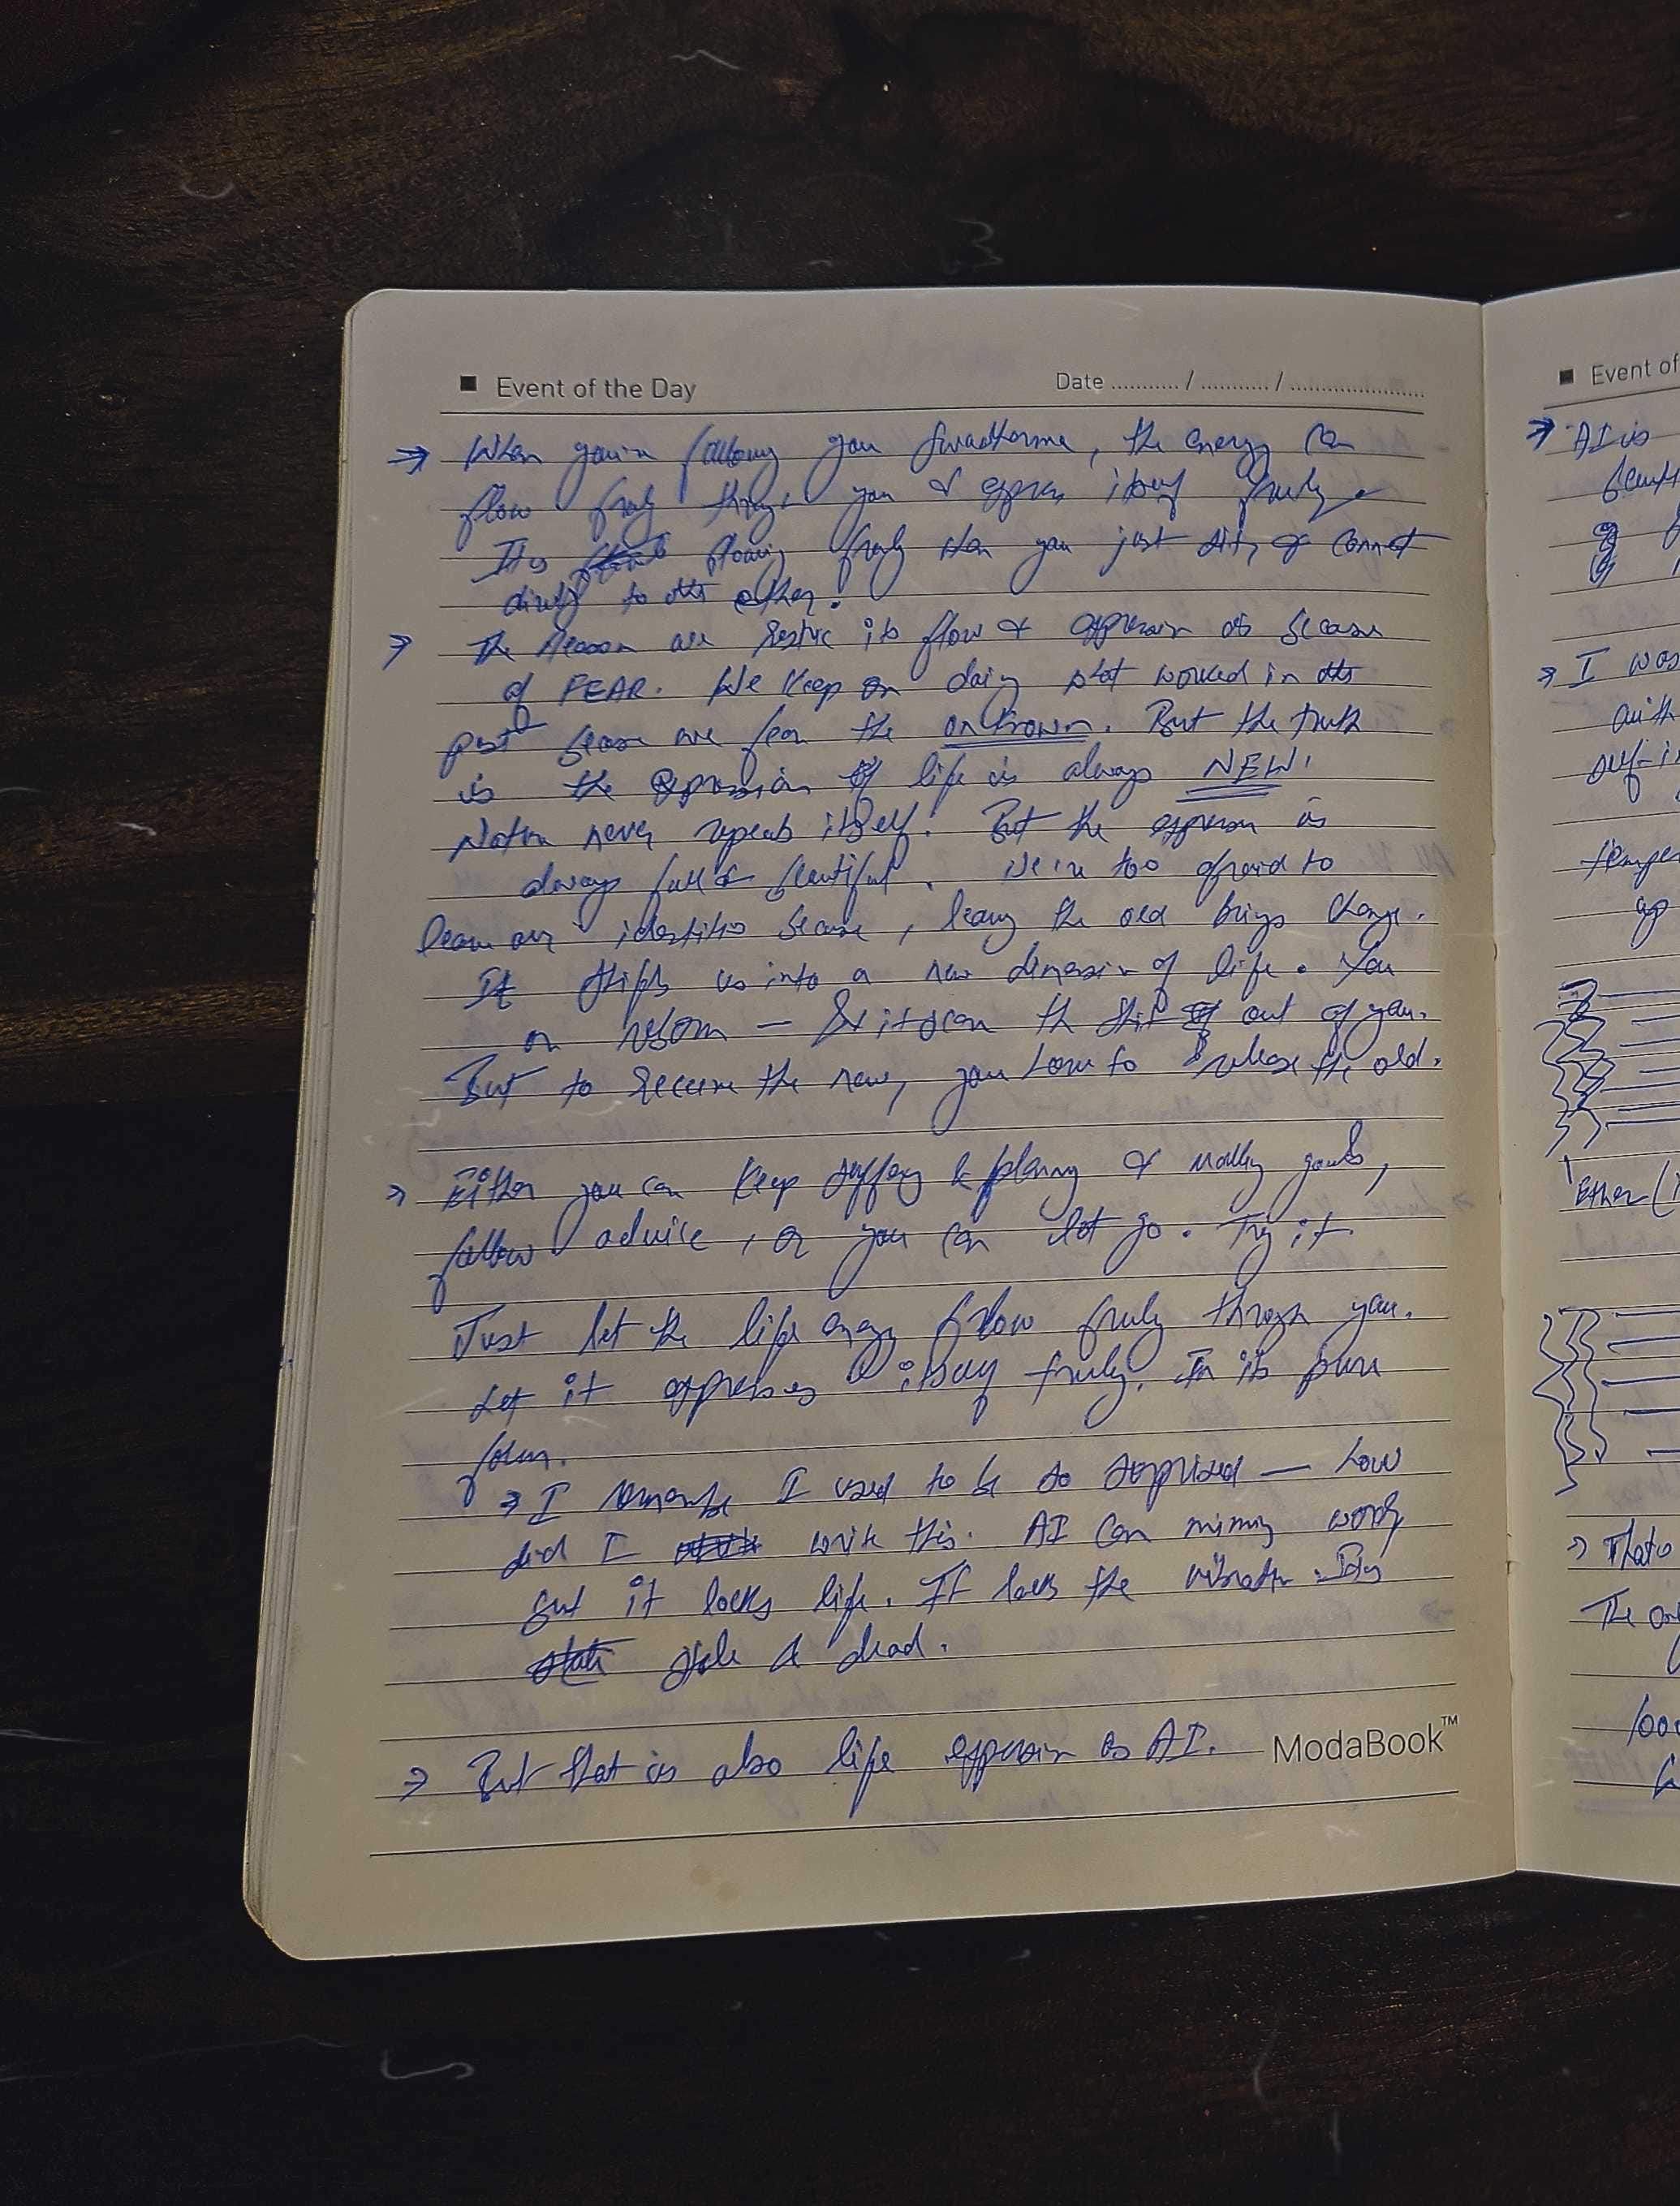 Event of the Day
Date ........... / ........... / ......................
⇒ When you're following your Swadharma, the energy can
flow freely through you & express itself freely.
It's flowing freely when you just sit, & connect
directly to the other.
→ The reason we restrict its flow & expression is because
of FEAR. We keep on doing what worked in the
past because we fear the unknown. But the truth
is the expression of life is always NEW!
Nature never repeats itself! But the expression is
always full & beautiful. We're too afraid to
leave our identities because, leaving the old brings change.
It shifts us into a new dimension of life. You
on reborn — & it scares the shit out of you.
But to receive the new, you have to release the old.
→ Either you can keep suffering & planning & making goals,
follow advice, or you can let go. Try it.
Just let the life energy flow freely through you.
Let it express itself freely. In its pure
form.
→ I remember I used to be so surprised — how
did I write this. AI can mimic words
but it lacks life. It lacks the vibration.
stale & dead.
→ But that is also life expression as AI.
ModaBook™
Event of
⇒ AI is
→ I was
with
self-i
temper
up
Ether (
→ That's
The on